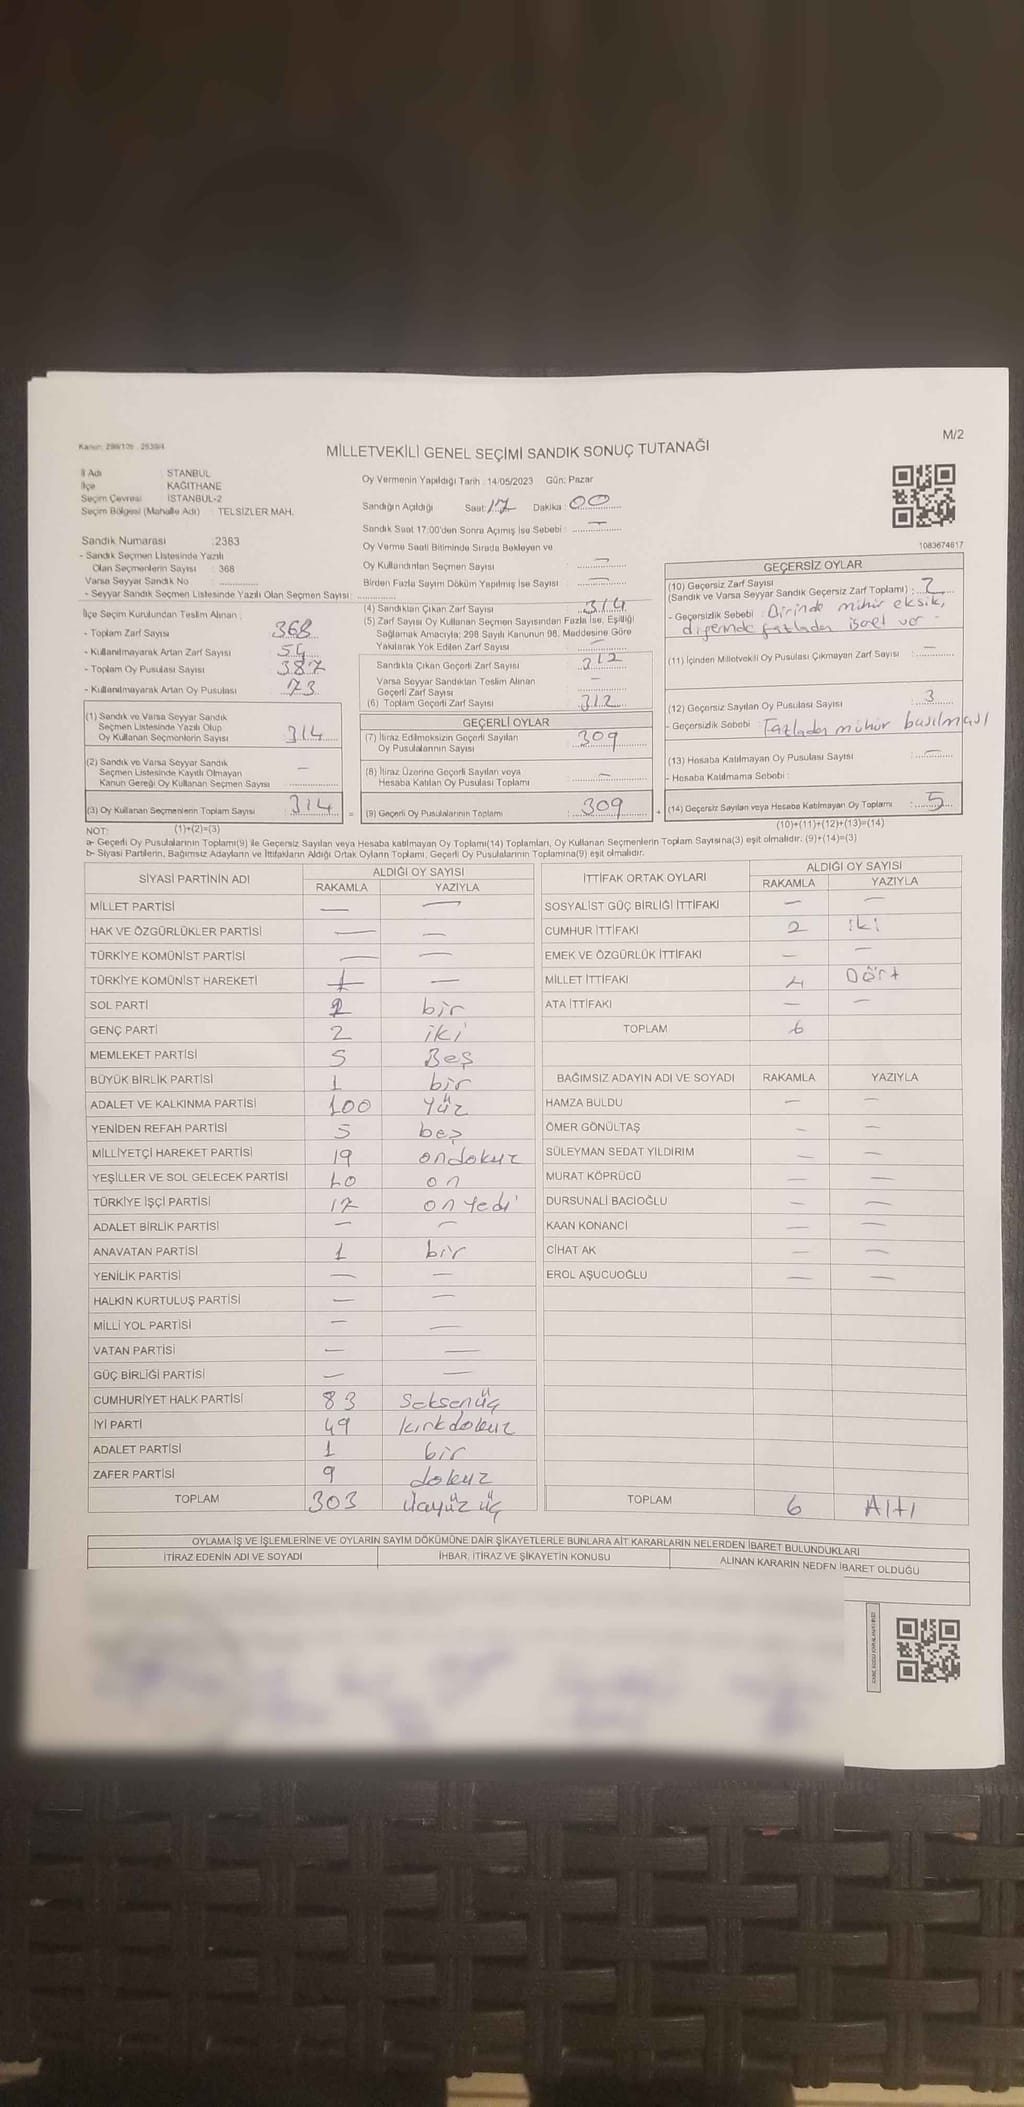 Kanun: 298/105 , 2839/4
M/2
MİLLETVEKİLİ GENEL SEÇİMİ SANDIK SONUÇ TUTANAĞI
İl Adı : İSTANBUL
İlçe : KAĞITHANE
Seçim Çevresi : İSTANBUL-2
Seçim Bölgesi (Mahalle Adı) : TELSİZLER MAH.
Sandık Numarası :2383
- Sandık Seçmen Listesinde Yazılı
Olan Seçmenlerin Sayısı : 368
Varsa Seyyar Sandık No :
- Seyyar Sandık Seçmen Listesinde Yazılı Olan Seçmen Sayısı :
Oy Vermenin Yapıldığı Tarih : 14/05/2023 Gün: Pazar
Sandığın Açıldığı Saat: 17 Dakika : 00
Sandık Saat 17:00'den Sonra Açımış İse Sebebi : —
Oy Verme Saati Bitiminde Sırada Bekleyen ve
Oy Kullandırılan Seçmen Sayısı : —
Birden Fazla Sayım Döküm Yapılmış İse Sayısı : —
1083674617
İlçe Seçim Kurulundan Teslim Alınan :
- Toplam Zarf Sayısı : 368
- Kullanılmayarak Artan Zarf Sayısı : 54
- Toplam Oy Pusulası Sayısı : 387
- Kullanılmayarak Artan Oy Pusulası : 73
(1) Sandık ve Varsa Seyyar Sandık
Seçmen Listesinde Yazılı Olup
Oy Kullanan Seçmenlerin Sayısı : 314
(2) Sandık ve Varsa Seyyar Sandık
Seçmen Listesinde Kayıtlı Olmayan
Kanun Gereği Oy Kullanan Seçmen Sayısı : —
(3) Oy Kullanan Seçmenlerin Toplam Sayısı : 314
(1)+(2)=(3)
(4) Sandıktan Çıkan Zarf Sayısı : 314
(5) Zarf Sayısı Oy Kullanan Seçmen Sayısından Fazla İse, Eşitliği
Sağlamak Amacıyla; 298 Sayılı Kanunun 98. Maddesine Göre
Yakılarak Yok Edilen Zarf Sayısı : —
Sandıkta Çıkan Geçerli Zarf Sayısı : 312
Varsa Seyyar Sandıktan Teslim Alınan
Geçerli Zarf Sayısı : —
(6) Toplam Geçerli Zarf Sayısı : 312
GEÇERLİ OYLAR
(7) İtiraz Edilmeksizin Geçerli Sayılan
Oy Pusulalarının Sayısı : 309
(8) İtiraz Üzerine Geçerli Sayılan veya
Hesaba Katılan Oy Pusulası Toplamı : —
= (9) Geçerli Oy Pusulalarının Toplamı : 309 +
GEÇERSİZ OYLAR
(10) Geçersiz Zarf Sayısı
(Sandık ve Varsa Seyyar Sandık Geçersiz Zarf Toplamı) : 2
- Geçersizlik Sebebi : Birinde mühür eksik,
diğerinde fazladan işaret var -
(11) İçinden Milletvekili Oy Pusulası Çıkmayan Zarf Sayısı : —
(12) Geçersiz Sayılan Oy Pusulası Sayısı : 3
- Geçersizlik Sebebi : Fazladan mühür basılması
(13) Hesaba Katılmayan Oy Pusulası Sayısı : —
- Hesaba Katılmama Sebebi :
(14) Geçersiz Sayılan veya Hesaba Katılmayan Oy Toplamı : 5
(10)+(11)+(12)+(13)=(14)
NOT:
a- Geçerli Oy Pusulalarının Toplamı(9) ile Geçersiz Sayılan veya Hesaba katılmayan Oy Toplamı(14) Toplamları, Oy Kullanan Seçmenlerin Toplam Sayısına(3) eşit olmalıdır. (9)+(14)=(3)
b- Siyasi Partilerin, Bağımsız Adayların ve İttifakların Aldığı Ortak Oyların Toplamı, Geçerli Oy Pusulalarının Toplamına(9) eşit olmalıdır.
SİYASİ PARTİNİN ADI ALDIĞI OY SAYISI
RAKAMLA YAZIYLA
MİLLET PARTİSİ — —
HAK VE ÖZGÜRLÜKLER PARTİSİ — —
TÜRKİYE KOMÜNİST PARTİSİ — —
TÜRKİYE KOMÜNİST HAREKETİ —
SOL PARTİ bir
GENÇ PARTİ 2 iki
MEMLEKET PARTİSİ 5 Beş
BÜYÜK BİRLİK PARTİSİ 1 bir
ADALET VE KALKINMA PARTİSİ 100 Yüz
YENİDEN REFAH PARTİSİ 5 beş
MİLLİYETÇİ HAREKET PARTİSİ 19 ondokuz
YEŞİLLER VE SOL GELECEK PARTİSİ 10 on
TÜRKİYE İŞÇİ PARTİSİ 17 onyedi
ADALET BİRLİK PARTİSİ — —
ANAVATAN PARTİSİ 1 bir
YENİLİK PARTİSİ — —
HALKIN KURTULUŞ PARTİSİ — —
MİLLİ YOL PARTİSİ — —
VATAN PARTİSİ — —
GÜÇ BİRLİĞİ PARTİSİ — —
CUMHURİYET HALK PARTİSİ 83 Seksenüç
İYİ PARTİ 49 kırkdokuz
ADALET PARTİSİ 1 bir
ZAFER PARTİSİ 9 dokuz
TOPLAM 303 Üçyüz üç
İTTİFAK ORTAK OYLARI ALDIĞI OY SAYISI
RAKAMLA YAZIYLA
SOSYALİST GÜÇ BİRLİĞİ İTTİFAKI — —
CUMHUR İTTİFAKI 2 iki
EMEK VE ÖZGÜRLÜK İTTİFAKI — —
MİLLET İTTİFAKI 4 Dört
ATA İTTİFAKI — —
TOPLAM 6
BAĞIMSIZ ADAYIN ADI VE SOYADI RAKAMLA YAZIYLA
HAMZA BULDU — —
ÖMER GÖNÜLTAŞ — —
SÜLEYMAN SEDAT YILDIRIM — —
MURAT KÖPRÜCÜ — —
DURSUNALİ BACIOĞLU — —
KAAN KONANCİ — —
CİHAT AK — —
EROL AŞUCUOĞLU — —
TOPLAM 6 Altı
OYLAMA İŞ VE İŞLEMLERİNE VE OYLARIN SAYIM DÖKÜMÜNE DAİR ŞİKAYETLERLE BUNLARA AİT KARARLARIN NELERDEN İBARET BULUNDUKLARI
İTİRAZ EDENİN ADI VE SOYADI İHBAR, İTİRAZ VE ŞİKAYETİN KONUSU ALINAN KARARIN NEDEN İBARET OLDUĞU